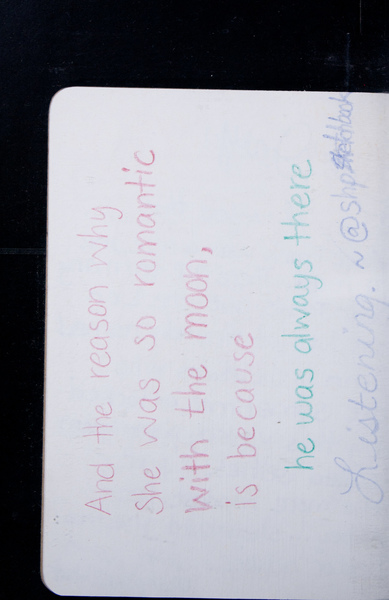 And the reason why
she was so romantic
with the moon,
is because
he was always there
Listening. ~ @shpsketchbook